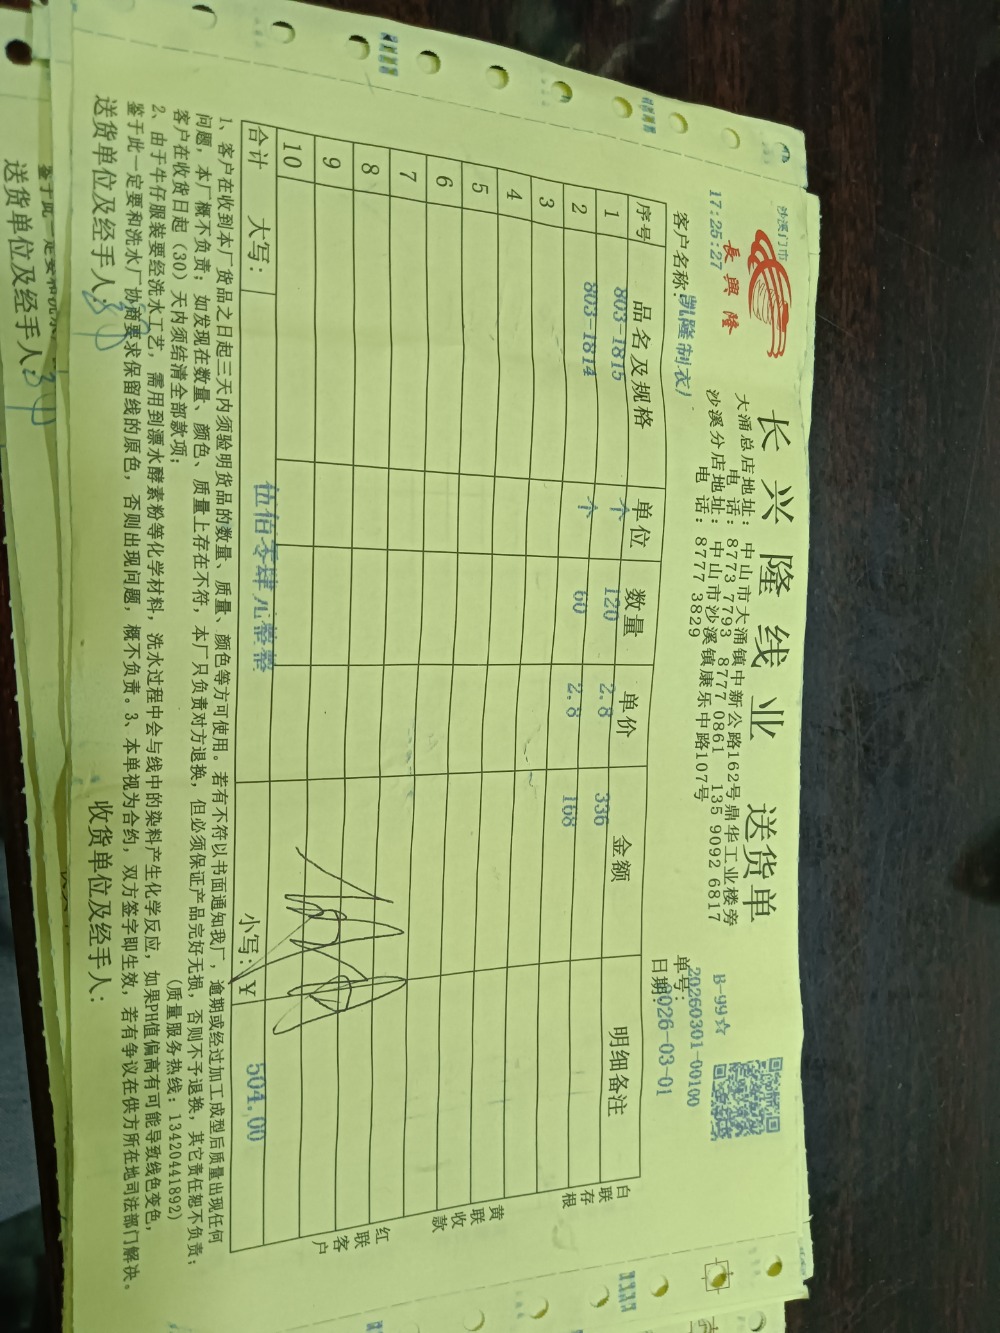 沙溪门市
長興隆
长兴隆线业 送货单
大涌总店地址：中山市大涌镇中新公路162号鼎华工业楼旁
电 话：8773 7793 8777 0861 135 9092 6817
沙溪分店地址：中山市沙溪镇康乐中路107号
电 话：8777 3829
17:25:27
B-99☆
单号：20260301-00100
客户名称：凯隆制衣厂
日期：2026-03-01
序号 品名及规格 单位 数量 单价 金额 明细备注
1 803-1815 个 120 2.8 336
2 803-1814 个 60 2.8 168
3
4
5
6
7
8
9
10
合计 大写： 伍佰零肆元整整 小写：￥ 504.00
白联存根
黄联收款
红联客户
1、客户在收到本厂货品之日起三天内须验明货品的数量、质量、颜色等方可使用。若有不符以书面通知我厂，逾期或经过加工成型后质量出现任何
问题，本厂概不负责；如发现在数量、颜色、质量上存在不符，本厂只负责对方退换，但必须保证产品完好无损，否则不予退换，其它责任恕不负责；
客户在收货日起（30）天内须结清全部款项； （质量服务热线：13420441892）
2、由于牛仔服装要经洗水工艺，需用到漂水酵素粉等化学材料，洗水过程中会与线中的染料产生化学反应，如果PH值偏高有可能导致线色变色，
鉴于此一定要和洗水厂协商要求保留线的原色，否则出现问题，概不负责。3、本单视为合约，双方签字即生效，若有争议在供方所在地司法部门解决。
送货单位及经手人： 收货单位及经手人：
送货单位及经手人